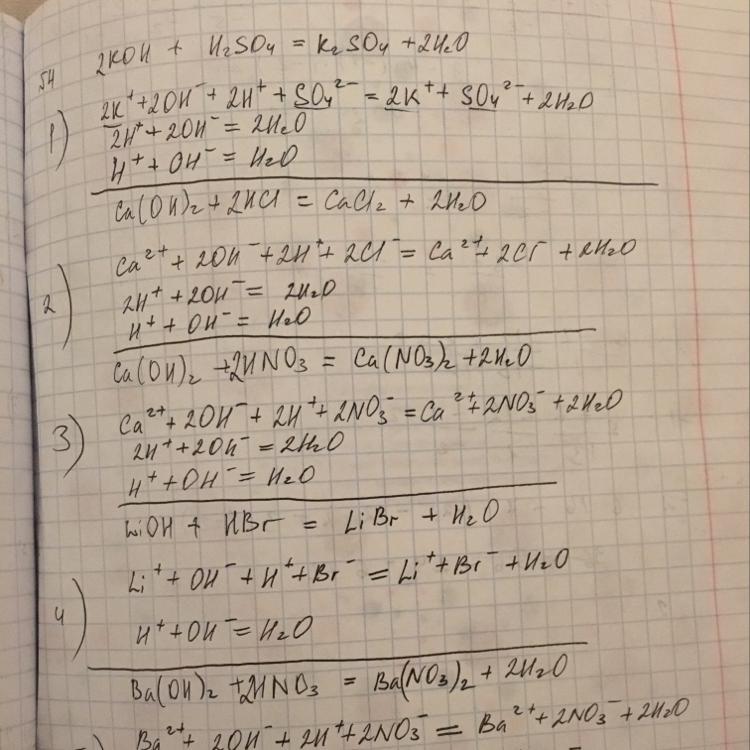 54
2KOH + H₂SO₄ = K₂SO₄ + 2H₂O
1) 2K⁺ + 2OH⁻ + 2H⁺ + SO₄²⁻ = 2K⁺ + SO₄²⁻ + 2H₂O
2H⁺ + 2OH⁻ = 2H₂O
H⁺ + OH⁻ = H₂O
Ca(OH)₂ + 2HCl = CaCl₂ + 2H₂O
2) Ca²⁺ + 2OH⁻ + 2H⁺ + 2Cl⁻ = Ca²⁺ + 2Cl⁻ + 2H₂O
2H⁺ + 2OH⁻ = 2H₂O
H⁺ + OH⁻ = H₂O
Ca(OH)₂ + 2HNO₃ = Ca(NO₃)₂ + 2H₂O
3) Ca²⁺ + 2OH⁻ + 2H⁺ + 2NO₃⁻ = Ca²⁺ + 2NO₃⁻ + 2H₂O
2H⁺ + 2OH⁻ = 2H₂O
H⁺ + OH⁻ = H₂O
LiOH + HBr = LiBr + H₂O
4) Li⁺ + OH⁻ + H⁺ + Br⁻ = Li⁺ + Br⁻ + H₂O
H⁺ + OH⁻ = H₂O
Ba(OH)₂ + 2HNO₃ = Ba(NO₃)₂ + 2H₂O
Ba²⁺ + 2OH⁻ + 2H⁺ + 2NO₃⁻ = Ba²⁺ + 2NO₃⁻ + 2H₂O